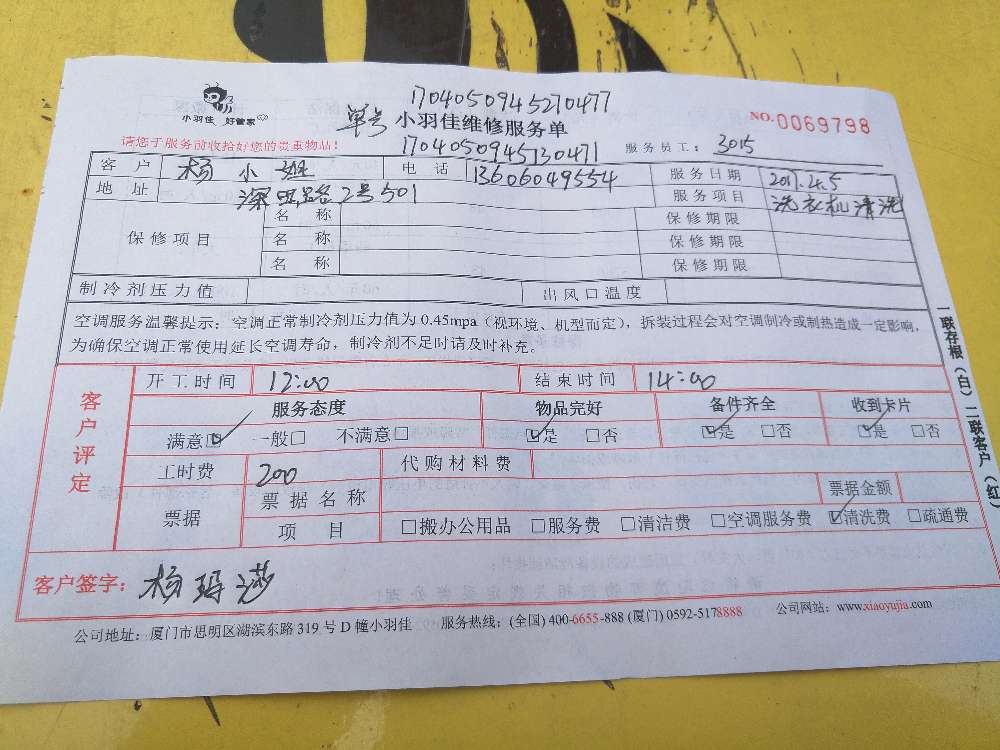 1704050945270477
小羽佳 好管家
单号 小羽佳维修服务单
NO.0069798
请您于服务前收拾好您的贵重物品!
1704050945130471
服务员工: 3015
客户 杨小姐 电话 13606049554 服务日期 2017.4.5
地址 深田路2号501 服务项目 洗衣机清洗
保修项目 名称 保修期限
名称 保修期限
名称 保修期限
制冷剂压力值 出风口温度
空调服务温馨提示:空调正常制冷剂压力值为0.45mpa(视环境、机型而定),拆装过程会对空调制冷或制热造成一定影响,
为确保空调正常使用延长空调寿命,制冷剂不足时请及时补充。
客户评定
开工时间 12:00 结束时间 14:00
服务态度 物品完好 备件齐全 收到卡片
满意☑ 一般□ 不满意□ ☑是 □否 ☑是 □否 ☑是 □否
工时费 200 代购材料费
票据 票据名称 票据金额
项目 □搬办公用品 □服务费 □清洁费 □空调服务费 ☑清洗费 □疏通费
客户签字:
公司地址:厦门市思明区湖滨东路319号D幢小羽佳 服务热线:(全国)400-6655-888 (厦门)0592-5178888 公司网站:www.xiaoyujia.com
一联存根(白)二联客户(红)